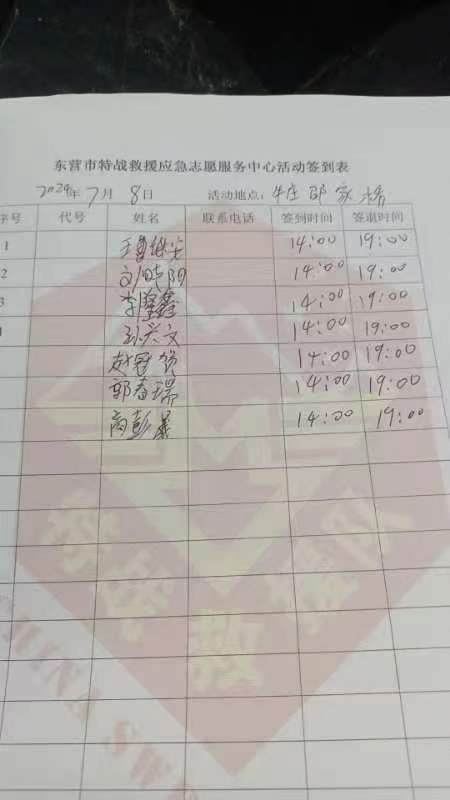 东营市特战救援应急志愿服务中心活动签到表
2024年7月8日 活动地点：牛庄邵家桥
序号 代号 姓名 联系电话 签到时间 签退时间
1 14:00 19:00
2 刘晓阳 14:00 19:00
3 李鑫鑫 14:00 19:00
孙兴文 14:00 19:00
赵冠 14:00 19:00
郭春瑞 14:00 19:00
尚彭 14:00 19:00
特战救援队
CHINA SW